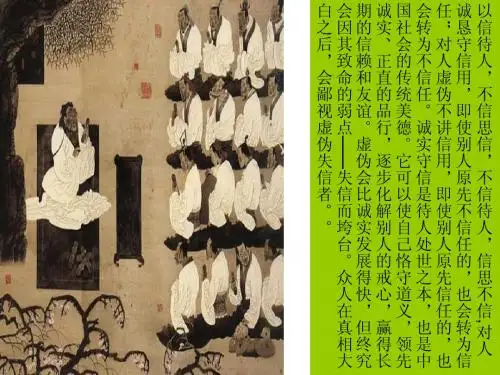 以信待人，不信思信，不信待人，信思不信,对人
诚恳守信用，即使别人原先不信任的，也会转为信
任；对人虚伪不讲信用，即使别人原先信任的，也
会转为不信任。诚实守信是待人处世之本，也是中
国社会的传统美德。它可以使自己恪守道义，领先
诚实、正直的品行，逐步化解别人的戒心，赢得长
期的信赖和友谊。虚伪会比诚实发展得快，但终究
会因其致命的弱点——失信而垮台。众人在真相大
白之后，会鄙视虚伪失信者。。